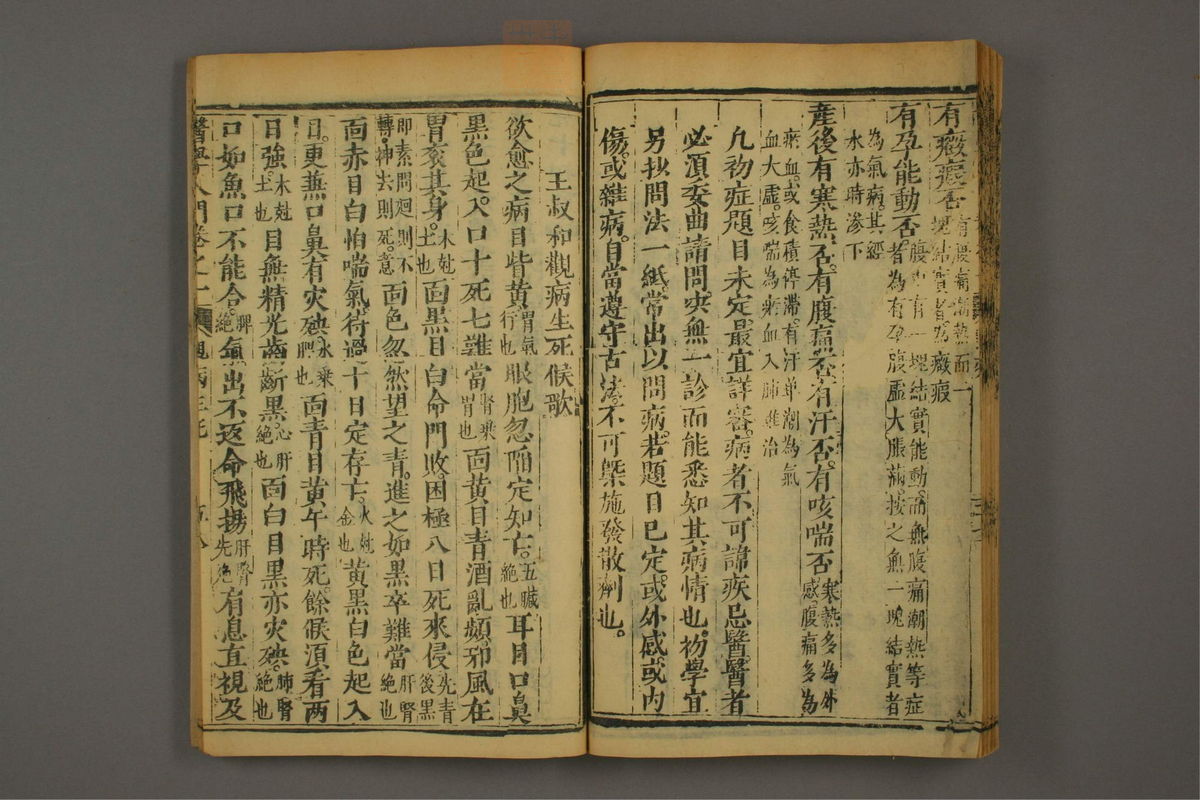 有癥瘕否 有腹痛潮熱而一塊結實者為癥瘕
有孕能動否 腹中有一塊結實能動而無腹痛潮熱等症者為有孕腹虛大脹痛按之無一塊結實者
為氣病其經水亦時滲下
產後有寒熱否有腹痛否有汗否有咳喘否 寒熱多為外感腹痛多為
瘀血或食積停滯有汗單潮為氣血大虛咳喘為瘀血入肺難治
凡初症題目未定最宜詳審病者不可諱疾忌醫醫者
必須委曲請問決無一診而能悉知其病情也初學宜
另抄問法一紙常出以問病若題目已定或外感或內
傷或雜病自當遵守古法不可槩施發散劑也
王叔和觀病生死候歌
欲愈之病目眥黃 胃氣行也 眼胞忽陷定知亡 五臟絕也 耳目口鼻
黑色起入口十死七難當 腎乘胃也 面黃目青酒亂頻邪風在
胃袞其身 木尅土也 面黑目白命門敗困極八日死來侵 先青後黑
即素問廻則不轉神去則死意 面色忽然望之青進之如黑卒難當 肝腎絕也
面赤目白怕喘氣待過十日定存亡 火尅金也 黃黑白色起入
目更蕪口鼻有灾殃 水乘脾也 面青目黃午時死餘候須看兩
日強 木尅土也 目無精光齒齗黑 心肝絕也 面白目黑亦灾殃 肺腎絕也
口如魚口不能合 脾絕 氣出不返命飛揚 肝腎先絕 有息直視及
醫學入門卷之一 觀病生死